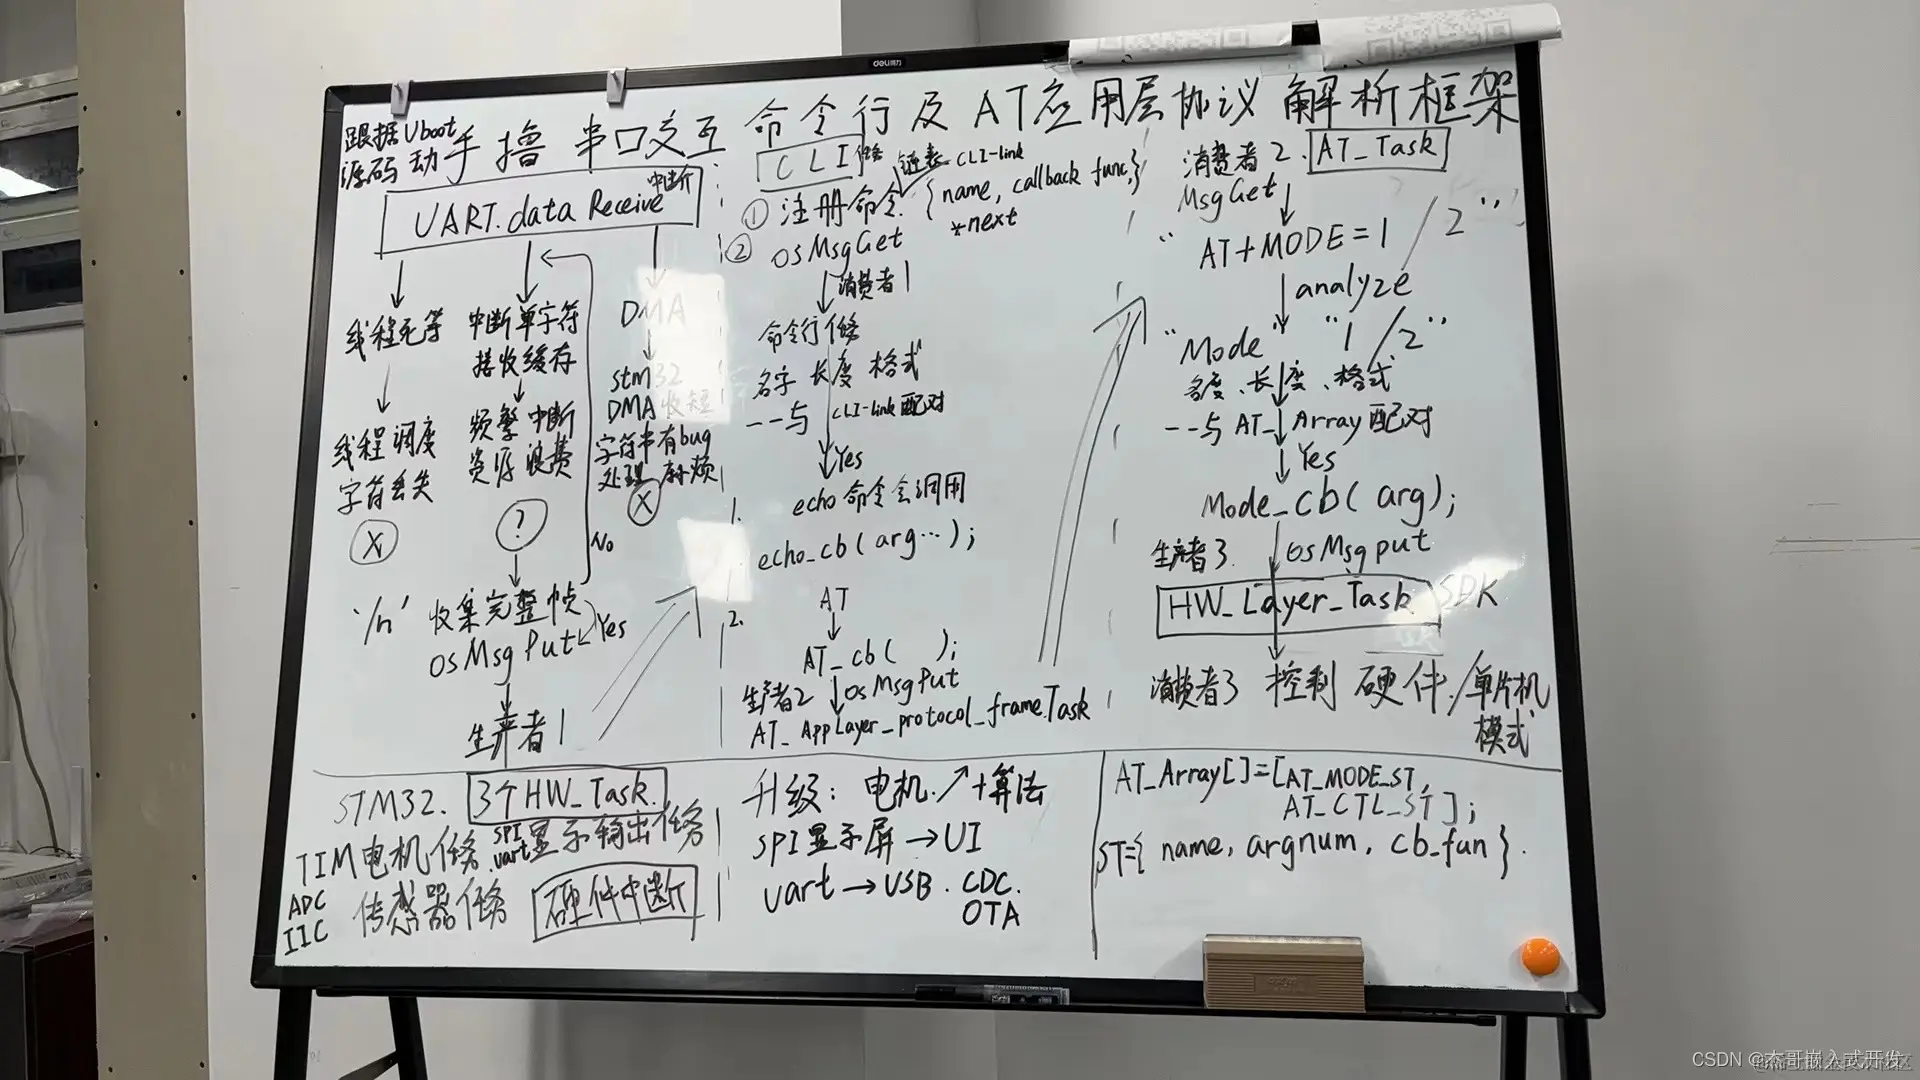 跟据Uboot
源码动手撸 串口交互 命令行及AT应用层协议解析框架
UART.data Receive 中断
线程死等
线程调度
字符丢失
X
中断单字符
接收缓存
频繁中断
资源浪费
?
No
'/n' 收集完整帧
Yes
osMsgPut
生产者1
DMA
stm32
DMA收短
字符串有bug
处理麻烦
X
CLI 任务
链表 CLI-link
① 注册命令. {name, callback func,}
*next
② osMsgGet
消费者1
命令行任务
名字 长度 格式
--与 CLI-link配对
Yes
1. echo命令会调用
echo_cb(arg…);
2. AT
AT_cb( );
生产者2 osMsgPut
AT_AppLayer_protocol_frame.Task
消费者2. AT_Task
MsgGet
"AT+MODE=1/2"
analyze
"Mode" "1/2"
名度、长度、格式
--与AT_Array配对
Yes
Mode_cb(arg);
生产者3. osMsgput
HW_Layer_Task SDK
消费者3 控制硬件/单片机
模式
STM32. 3个HW_Task.
TIM电机任务. SPI uart显示输出任务
ADC
IIC 传感器任务 硬件中断
升级: 电机↗+算法
SPI显示屏→UI
uart→USB. CDC.
OTA
AT_Array[]=[AT_MODE_ST,
AT_CTL_ST];
ST={name, argnum, cb_fun}.
deli得力
CSDN @杰哥嵌入式开发